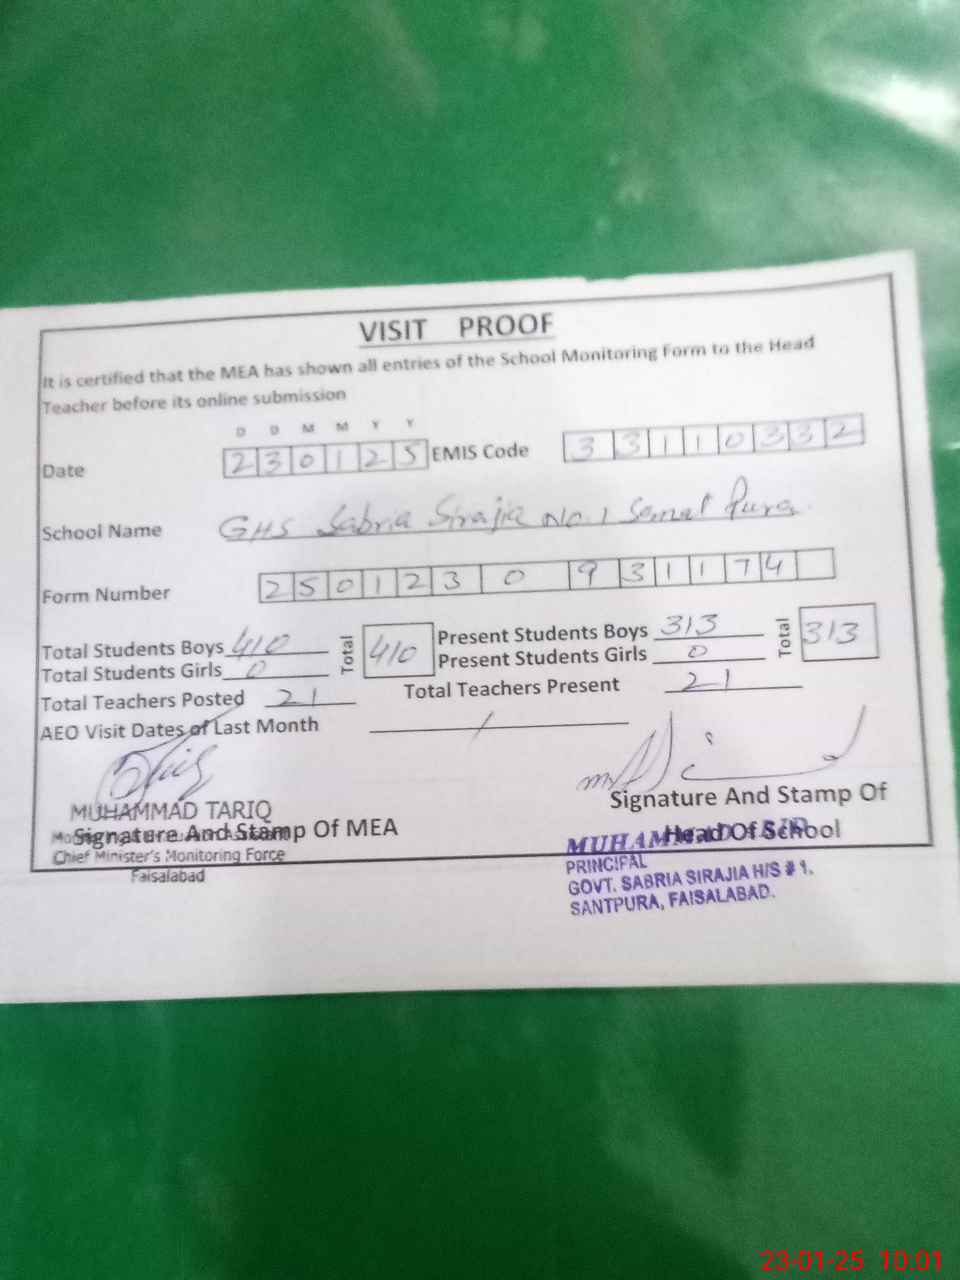 VISIT PROOF
It is certified that the MEA has shown all entries of the School Monitoring Form to the Head
Teacher before its online submission
D D M M Y Y
Date 230125 EMIS Code 33110332
School Name GHS Sabria Sirajia No. 1 Pura
Form Number 2501230931174
Total Students Boys 410 Total 410 Present Students Boys 313 Total 313
Total Students Girls 0 Present Students Girls 0
Total Teachers Posted 21 Total Teachers Present 21
AEO Visit Dates of Last Month /
MUHAMMAD TARIQ
Signature And Stamp Of MEA
Chief Minister's Monitoring Force
Faisalabad
Signature And Stamp Of
Head Of School
MUHAMMAD
PRINCIPAL
GOVT. SABRIA SIRAJIA H/S # 1.
SANTPURA, FAISALABAD.
23-01-25 10:01